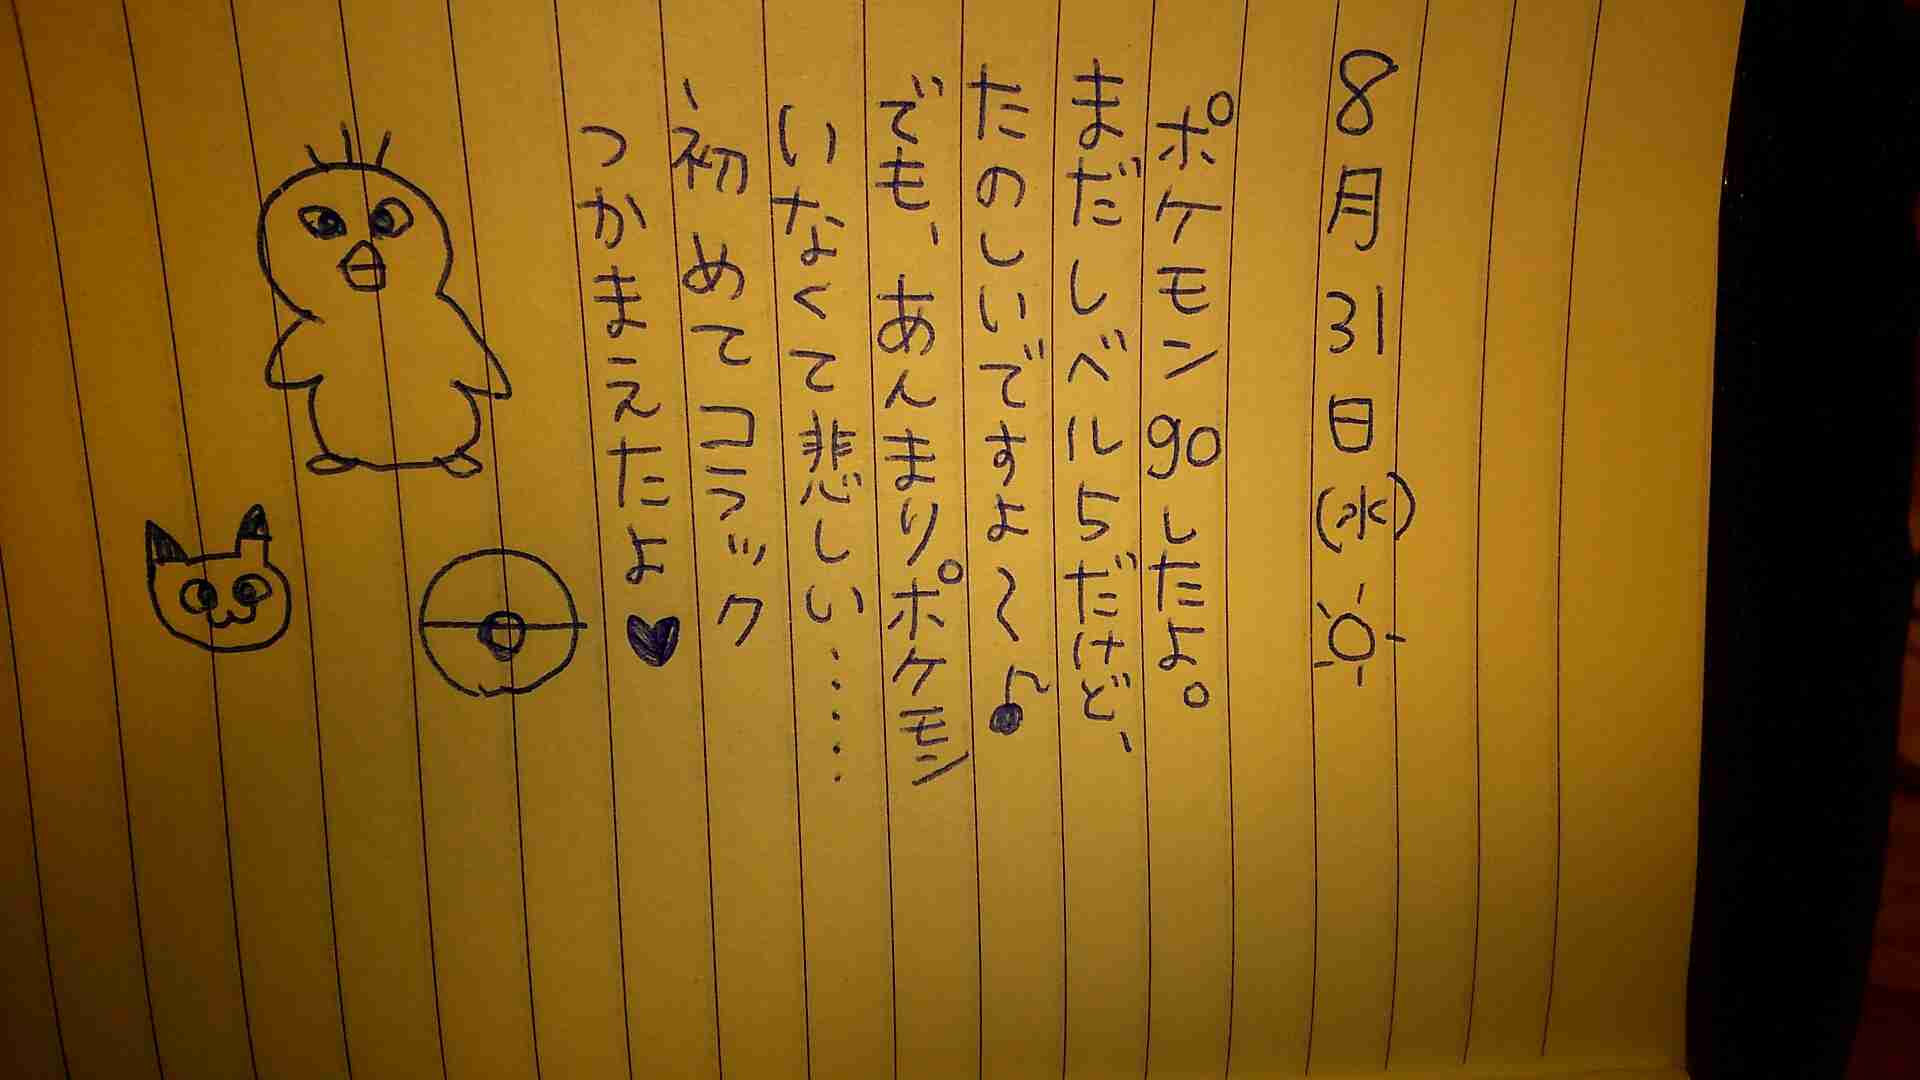 8月31日(水)
ポケモン go したよ。
まだしべル5だけど、
たのしいですよ〜♪
でも、あんまりポケモン
いなくて悲しい……
、初めてコラック
つかまえたよ♥